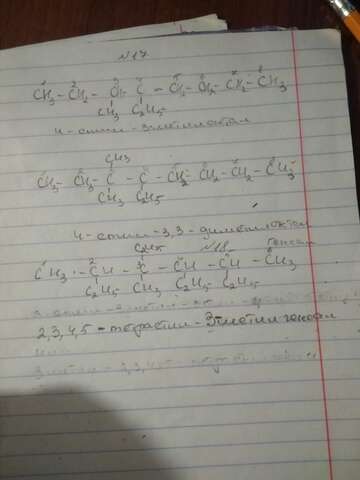 N17
CH₃ - CH₂ - CH - C - CH₂ - CH₂ - CH₂ - CH₃
CH₃ C₂H₅
4-этил-3метилоктан
CH₃
CH₃ - CH₂ - C - C - CH₂ - CH₂ - CH₂ - CH₃
CH₃ C₂H₅
4-этил-3,3-диметилоктан
C₂H₅ N18 гексан
CH₃ - CH - C - CH - CH - CH₃
C₂H₅ CH₃ C₂H₅ C₂H₅
2,3,4,5-тетраэтил-3метил гексан